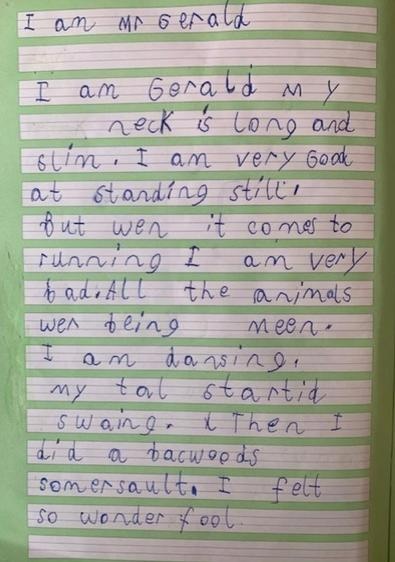 I am Mr Gerald
I am Gerald My
neck is long and
slim. I am very Good
at standing still.
But wen it comes to
running I am very
bad. All the animals
wer being meen.
I am dansing.
my tal startid
swaing. Then I
did a bacwoods
somersault. I felt
so wonder fool.